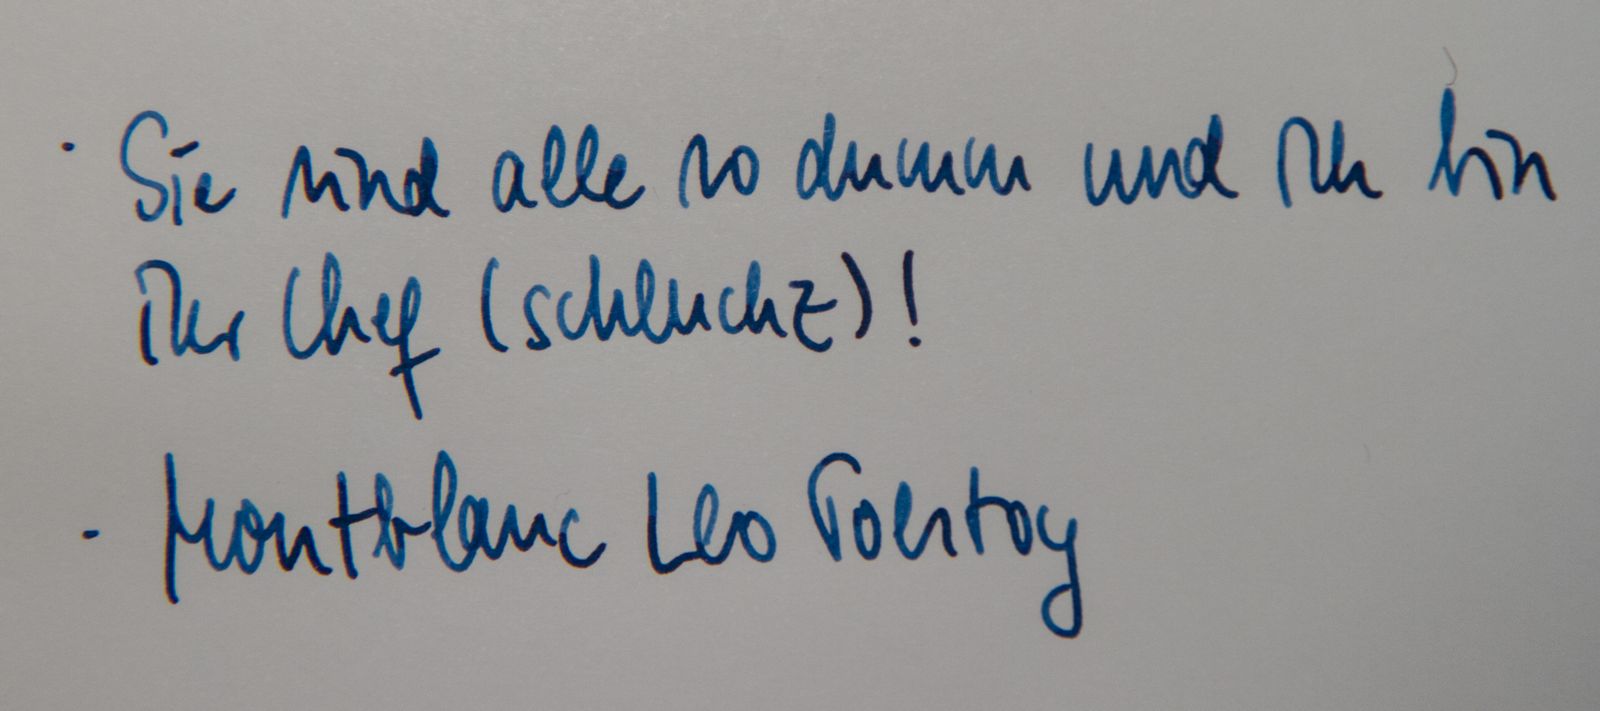 · Sie sind alle so dumm und ich bin
ihr Chef (schluchz)!
- Montblanc Leo Tolstoy